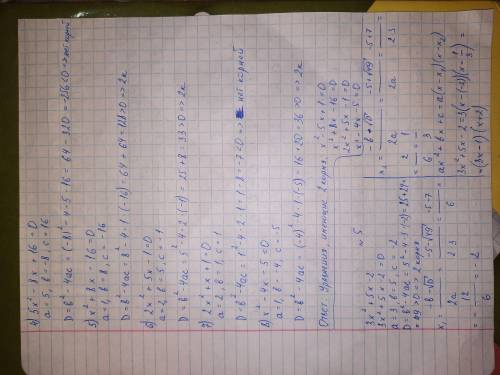 а) 5x² - 8x + 16 = 0
a = 5, b = -8, c = 16
D = b² - 4ac = (-8)² - 4·5·16 = 64 - 320 = -256 < 0 => нет корней
б) x² + 8x - 16 = 0
a = 1, b = 8, c = -16
D = b² - 4ac = 8² - 4·1·(-16) = 64 + 64 = 128 > 0 => 2к
2x² + 5x - 1 = 0
a = 2, b = 5, c = -1
D = b² - 4ac = 5² - 4·2·(-1) = 25 + 8 = 33 > 0 => 2к
2x² + x + 1 = 0
a = 2, b = 1, c = 1
D = b² - 4ac = 1² - 4·2·1 = 1 - 8 = -7 < 0 => нет корней
x² - 4x - 5 = 0
a = 1, b = -4, c = -5
D = b² - 4ac = (-4)² - 4·1·(-5) = 16 + 20 = 36 > 0 => 2к
Ответ: Уравнения, имеющие 2 корня
x² + 8x - 16 = 0
2x² + 5x - 1 = 0
x² - 4x - 5 = 0
5
3x² + 5x - 2
3x² + 5x - 2 = 0
a = 3, b = 5, c = -2
D = b² - 4ac = 5² - 4·3·(-2) = 25 + 24 =
= 49 > 0 => 2 корня
x₁ = -b - √D / 2a = -5 - √49 / 2·3 = -5 - 7 / 6
= - 12 / 6 = -2
-b + √D / 2a = -5 + √49 / 2a = -5 + 7 / 2·3
= 2 / 6 = 1 / 3
ax² + bx + c = a(x - x₁)(x - x₂)
3x² + 5x - 2 = 3(x - (-2))(x - 1/3) =
= (3x - 1)(x + 2)